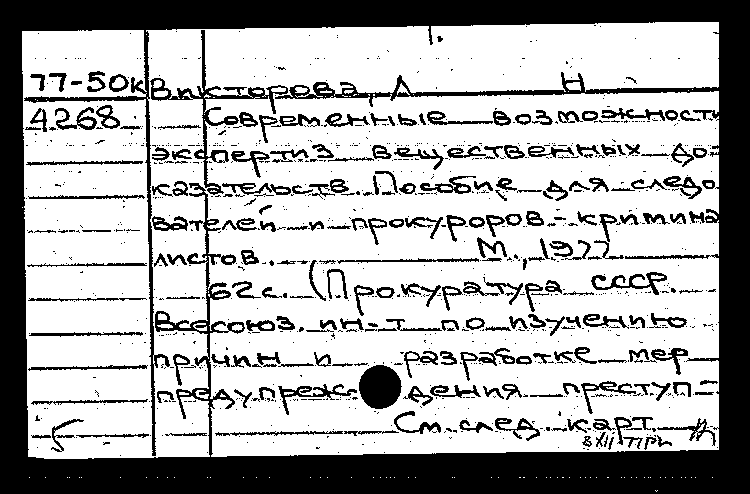 1.
77-50к Викторова, Л Н
4268 Современные возможности
экспертиз вещественных до-
казательств. Пособие для следо
вателей и прокуроров-кримина
листов. М., 1977
62с. (Прокуратура СССР.
Всесоюз. ин-т по изучению
причин и разработке мер
предупреждения преступ-
См. след. карт.
5 8 XII 77